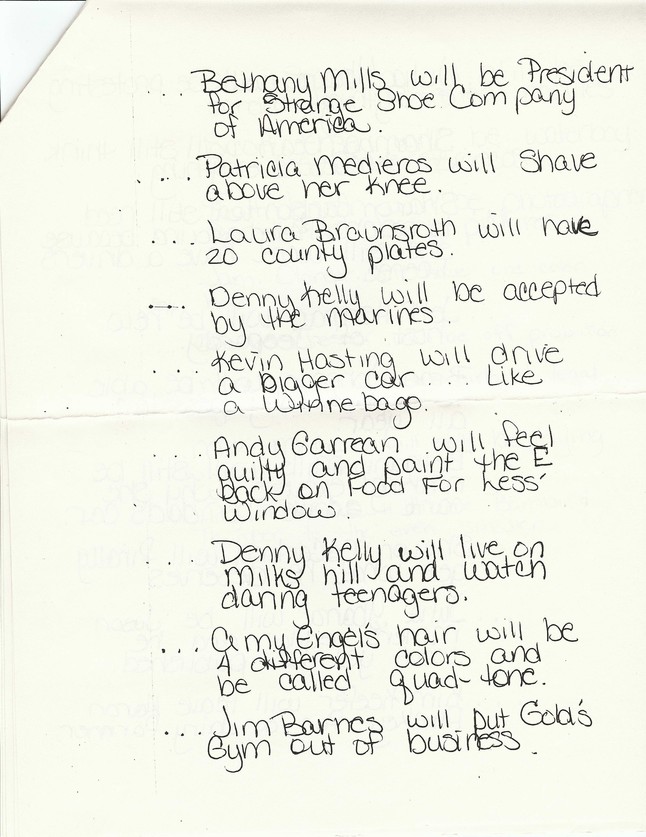 .... Bethany Mills will be President
for Strange Shoe Company
of America.
. ... Patricia Medieros will Shave
above her knee.
.... Laura Braunsroth will have
20 county plates.
.... Denny Kelly will be accepted
by the Marines.
.... Kevin Hasting will drive
a bigger car ... Like
a Winnebago.
.... Andy Garrean will feel
guilty and paint the E
back on Food For Less'
Window.
.... Denny Kelly will live on
Milks hill and watch
daring teenagers.
.... Amy Engels hair will be
4 different colors and
be called quad-tone.
.... Jim Barnes will put Gold's
Gym out of business.